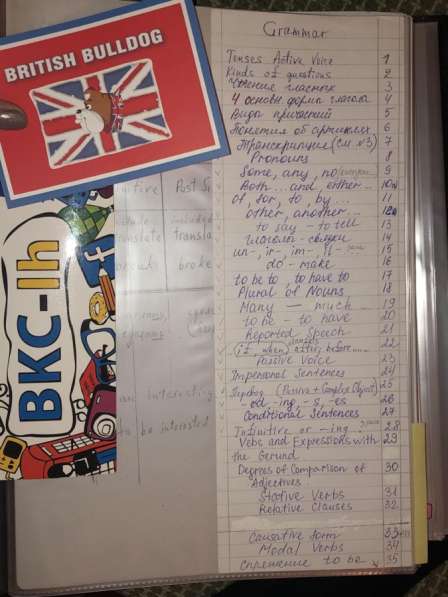 BRITISH BULLDOG
BKC-Ih
Grammar
Tenses Active Voice 1
Kinds of questions 2
Чтение гласных 3
4 основн форм глагола 4
Виды причастий 5
Понятия об артиклях 6
Транскрипция (см. №3) 7
Pronouns 8
Some, any, no 9
Both ... and either ... 10
of, for, to, by ... 11
other, another ... 12
to say – to tell 13
глаголы-связки 14
un-, ir-, im-, il- 15
do – make 16
to be to, to have to 17
Plural of Nouns 18
Many — much ... 19
to be – to have 20
Reported Speech 21
if, when, after, before ... 22
Passive Voice 23
Impersonal Sentences 24
(Passive + Complex Object) 25
-ed, -ing, -s, -es 26
Conditional Sentences 27
Infinitive or -ing 28
Vebs and Expressions with 29
the Gerund
Degrees of Comparison of 30
Adjectives
Stative Verbs 31
Relative Clauses 32
Causative form 33
Modal Verbs 34
спряжение to be 35
Past S
included
translate
transla
broke
interesting
to be interested